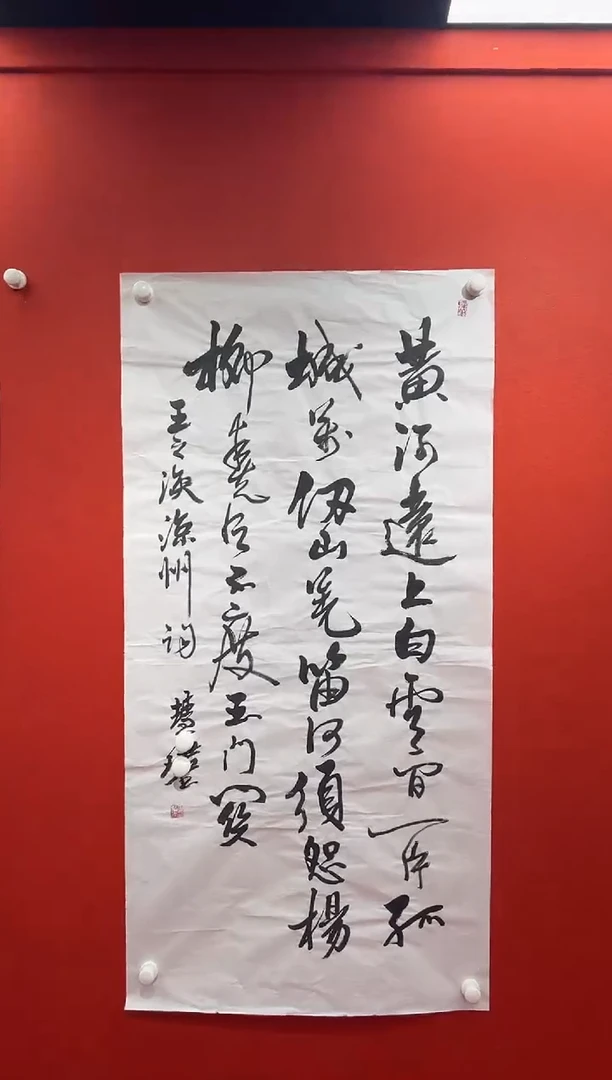 黄河遠上白雲间一片孤
城萬仞山羌笛何須怨楊
柳春光不度玉门關
王之涣凉州词